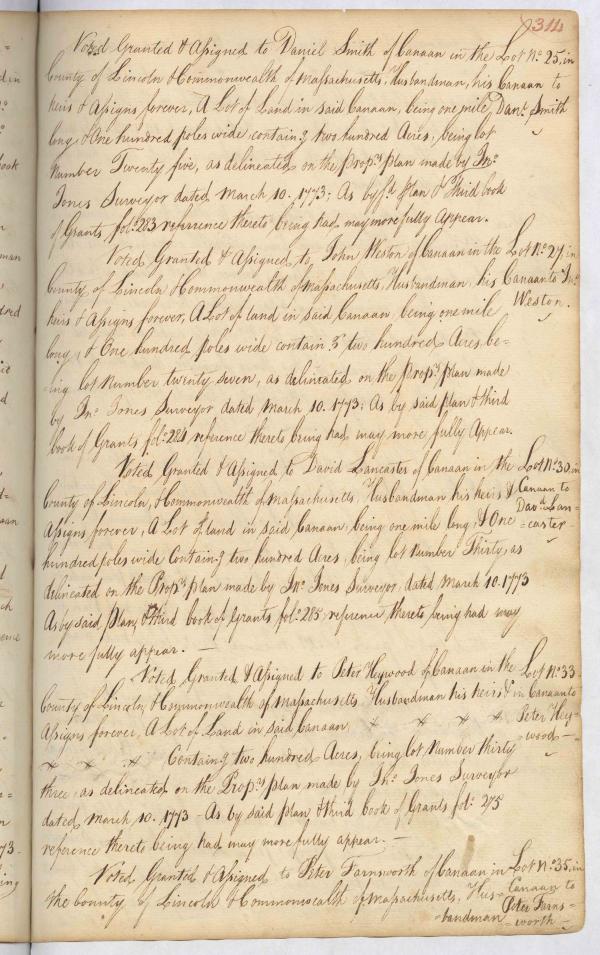 314
Voted Granted & Assigned to Daniel Smith of Canaan in the
County of Lincoln & Commonwealth of Massachusetts, Husbandman, his
heirs & Assigns forever, A Lot of Land in said Canaan, being one mile
long & One hundred poles wide contain.g two hundred Acres, being lot
number Twenty five, as delineated on the Prop.rs plan made by Jn.o
Jones Surveyor dated March 10. 1773; As by s.d plan & Third book
of Grants, fol.o 283 reference thereto being had, may more fully Appear.
Lot N.o 25, in
Canaan to
Dan.l Smith
Voted Granted & Assigned to John Weston of Canaan in the
County of Lincoln & Commonwealth of Massachusetts, Husbandman, his
heirs & Assigns forever, A Lot of land in said Canaan, being one mile
long, & One hundred poles wide contain.g two hundred Acres, be-
-ing lot number twenty seven, as delineated on the Prop.rs plan made
by Jn.o Jones Surveyor dated March 10. 1773; As by said plan & third
book of Grants fol.o 284 reference thereto being had, may more fully Appear.
Lot N.o 27, in
Canaan to Jn.o
Weston.
Voted Granted & Assigned to David Lancaster of Canaan in the
County of Lincoln, & Commonwealth of Massachusetts, Husbandman his heirs &
Assigns forever, A Lot of land in said Canaan, being one mile long, & One
hundred poles wide Contain.g two hundred Acres, being lot number Thirty, as
delineated on the Prop.rs plan made by Jn.o Jones Surveyor, dated March 10. 1773
As by said plan, & third book of Grants fol.o 285, reference thereto being had may
more fully appear. —
Lot N.o 30, in
Canaan to
Dav.d Lan-
=caster
Voted Granted & Assigned to Peter Heywood of Canaan in the
County of Lincoln, & Commonwealth of Massachusetts Husbandman his heirs &
Assigns forever, A Lot of Land in said Canaan
Contain.g two hundred Acres, being lot number thirty
three, as delineated on the Prop.rs plan made by Jn.o Jones Surveyor
dated March 10. 1773 - As by said plan & third book of Grants fol.o 275
reference thereto being had may more fully appear. —
Lot N.o 33
in Canaan to
Peter Hey-
wood —
Voted Granted & Assigned to Peter Farnsworth of Canaan in
the County of Lincoln & Commonwealth of Massachusetts, Hus-
-bandman
Lot N.o 35, in
Canaan to
Peter Farns=
=worth —